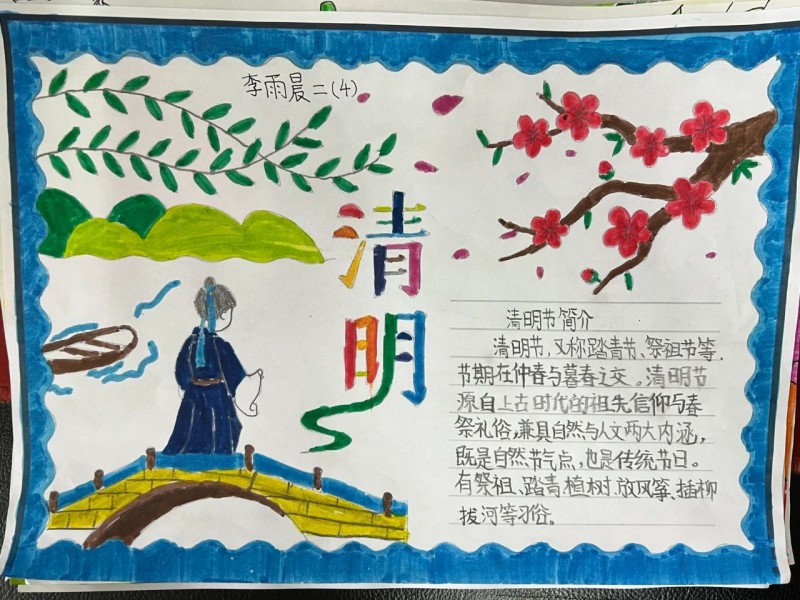 李雨晨二(4)
清明
清明节简介
清明节,又称踏青节、祭祖节等.
节期在仲春与暮春之交。清明节
源自上古时代的祖先信仰与春
祭礼俗,兼具自然与人文两大内涵,
既是自然节气点,也是传统节日。
有祭祖、踏青、植树、放风筝、插柳
拔河等习俗。